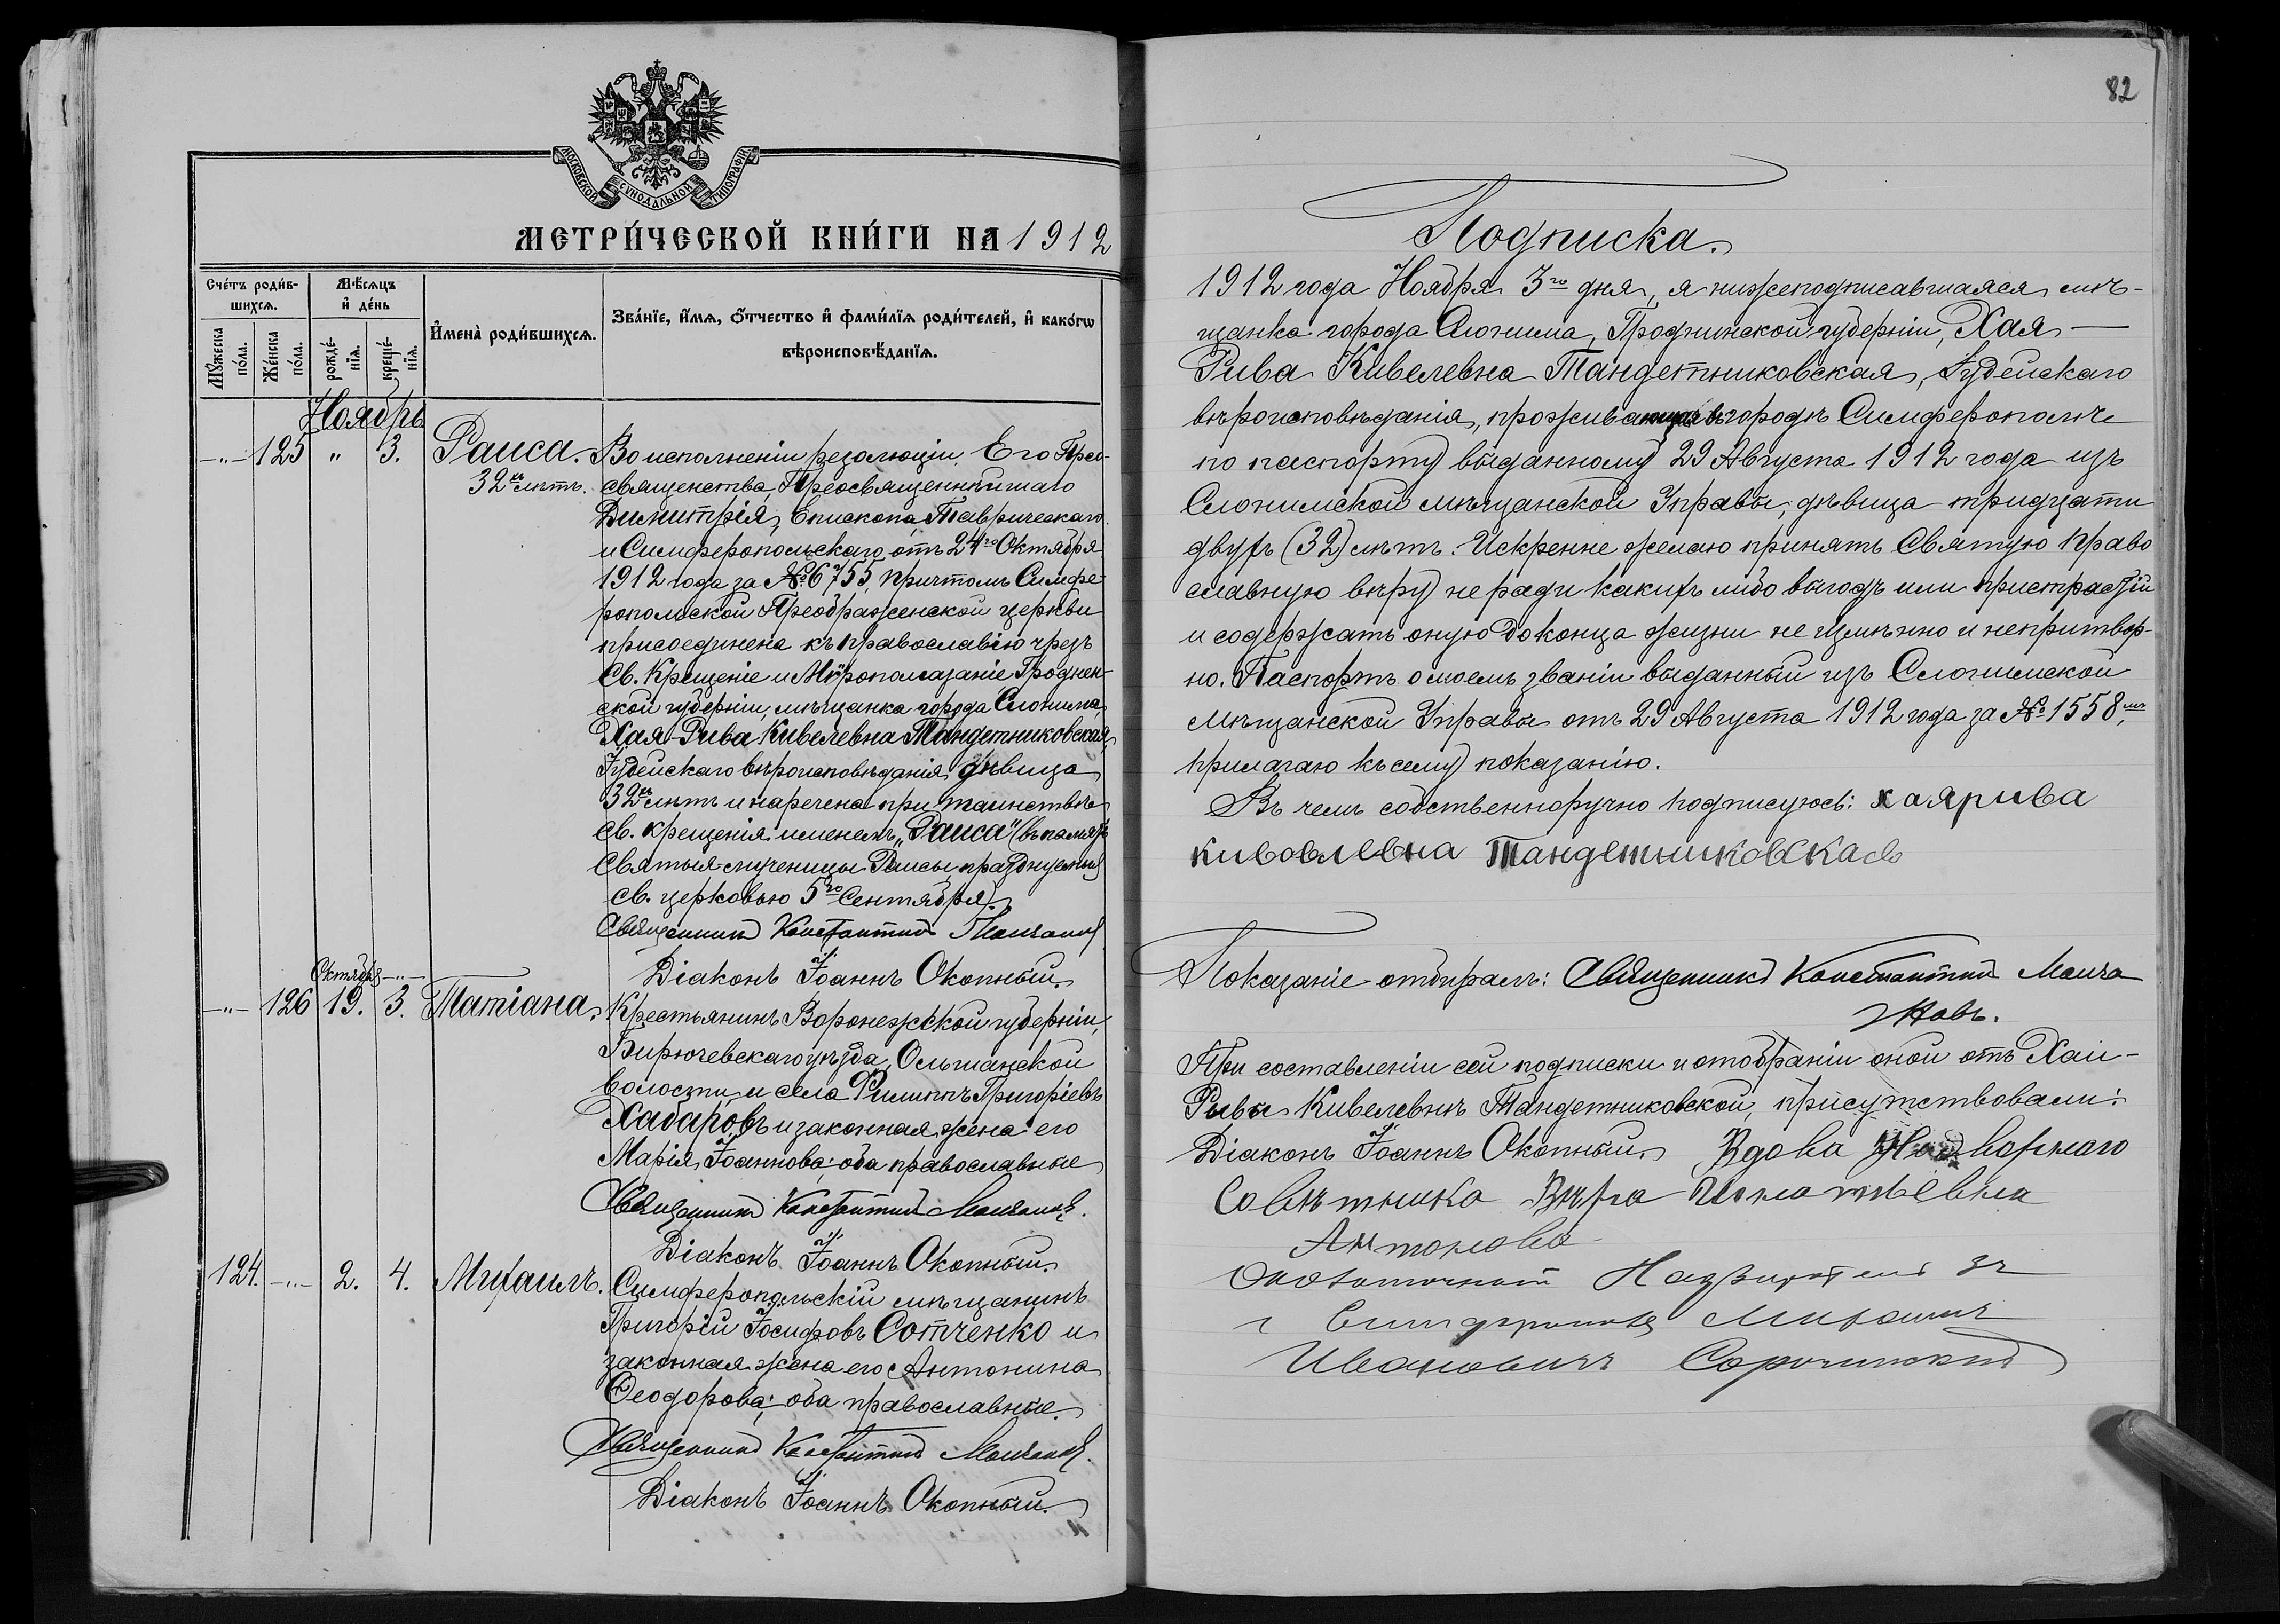 МОСКОВСКОЙ СѴНОДАЛЬНОЙ ТИПОГРАФІИ
МЕТРИ́ЧЕСКОЙ КНИ́ГИ НА 1912
Сче́тъ роди́в-
шихсѧ.
Мѣ́сѧцъ
и҆ де́нь
Мꙋ́жеска
по́ла.
Же́нска
по́ла.
рожде́-
нїѧ.
креще́-
нїѧ.
И҆мена̀ роди́вшихсѧ.
Зва́нїе, и҆́мѧ, ѻ҆́тчество и҆ фами́лїѧ роди́телей, и҆ како́гѡ
вѣроисповѣ́данїѧ.
Ноябрь
-"- 125 " 3. Раиса.
32хъ лѣтъ.
Во исполненіи резолюціи Его Прео-
священства, Преосвященнѣйшаго
Димитрія, Епископа Таврическаго
и Симферопольскаго, отъ 24го Октября
1912 года за № 6755, причтомъ Симфе-
ропольской Преображенской церкви
присоединена къ православію чрезъ
Св. Крещеніе и Мѵропомазаніе Гроднен-
ской губерніи, мѣщанка города Слонима
Хая-Рива Кивелевна Тандетниковская,
Іудейскаго вѣроисповѣданія, дѣвица
32хъ лѣтъ и наречена при таинствѣ
Св. крещенія именемъ „Раиса" (въ память
Святыя мученицы Раисы, празднуемыя
Св. церковью 5го Сентября).
Священникъ Константинъ Молчановъ
Діаконъ Іоаннъ Окопный.
Октябрь -"-
-"- 126 19. 3. Татіана.
Крестьянинъ Воронежской губерніи,
Бирючевскаго уѣзда, Ольшанской
волости, и села Филиппъ Григоріевъ
Хабаровъ и законная жена его
Марія Іоаннова; оба православные
Священникъ Константинъ Молчановъ.
Діаконъ Іоаннъ Окопный.
124. -"- 2. 4. Михаилъ.
Симферопольскій мѣщанинъ
Григорій Іосифовъ Сотченко и
законная жена его Антонина
Ѳеодорова; оба православные.
Священникъ Константинъ Молчановъ.
Діаконъ Іоаннъ Окопный.
82
Подписка.
1912 года Ноября 3го дня, я нижеподписавшаяся мѣ-
щанка города Слонима, Гродненской губерніи, Хая -
Рива Кивелевна Тандетниковская, Іудейскаго
вѣроисповѣданія, проживающая въ городѣ Симферополѣ
по паспорту выданному 29 Августа 1912 года изъ
Слонимской мѣщанской Управы, дѣвица тридцати
двухъ (32) лѣтъ. Искренне желаю принять Святую право
славную вѣру не ради какихъ либо выгодъ или пристрастій
и содержать оную до конца жизни не измѣнно и непритвор-
но. Паспортъ о моемъ званіи выданный изъ Слонимской
Мѣщанской Управы отъ 29 Августа 1912 года за № 1558,мъ
прилагаю къ сему показанію.
Въ чемъ собственноручно подписуюсь: хаярива
кивовлевна Тандетниковская
Показаніе отбиралъ: Священникъ Константинъ Молча
новъ.
При составленіи сей подписки и отобраніи оной отъ Хаи-
Ривы Кивелевны Тандетниковской, присутствовали:
Діаконъ Іоаннъ Окопный. Вдова Надворнаго
Совѣтника Вѣра Игнатьевна
Антонова
Околоточный Надзиратель
г Симферополя Михаилъ
Ивановичъ Сорочинскій